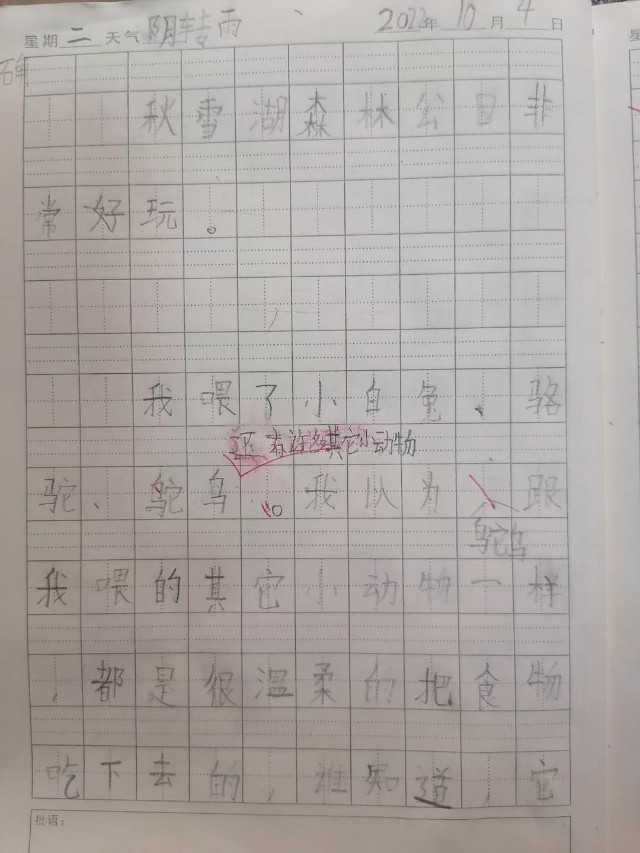 星期 二 天气 阴转雨 2022年 10 月 4 日
秋雪湖森林公日非
常好玩。
我喂了小白兔、骆
还有许多其它小动物
驼、鸵鸟。我以为 跟
鸵鸟
我喂的其它小动物一样
，都是很温柔的把食物
吃下去的，谁知道，它
批语：